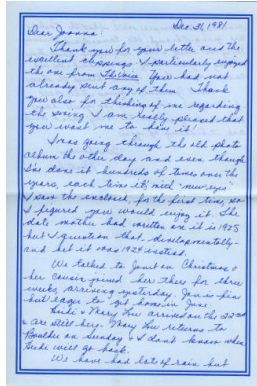 Dec. 31, 1981
Dear Joanna:
Thank you for your letter and the
excellent clippings. I particularly enjoyed
the one from The Voice. You had not
already sent any of them. Thank
you also for thinking of me regarding
the swing. I am really pleased that
you want me to have it!
I was going through the old photo
album the other day and even though
I've done it hundreds of times over the
years, each time it's with "new eyes"
I saw the enclosed, for the first time, so
I figured you would enjoy it. The
date mother had written on it is 1923
but I question that, developmentally -
and bet it was 1924 instead.
We talked to Janet on Christmas &
her cousin joined her there for three
weeks arriving yesterday. Jan is fine
but eager to get home in June.
and Mary Lou arrived on the 22nd
& are still here. Mary Lou returns to
Boulder on Sunday & I don't know when
will go back.
We have had lots of rain but